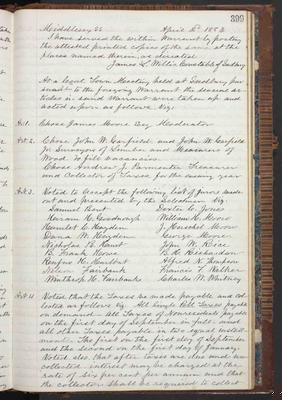 399
Middlesex ss April 1883
I have served the within Warrant by posting
the attested printed copies of the same at the
places named therein, as directed.
James L. Willis Constable of Sudbury
At a legal Town Meeting held at Sudbury pur
suant to the foregoing Warrant the several ar
ticles in said Warrant were taken up and
acted upon as follows Viz:
Art. 1. Chose James Moore Esq Moderator
Art. 2. Chose John W. Garfield and John W. Garfield
Jr Surveyors of Lumber and Measurers of
Wood to fill vacancies.
Chose Parmenter Treasurer
and Collector of Taxes for the ensuing year
Art. 3. Voted to accept the following list of jurors made
out and presented by the Selectmen Viz:
Samuel Dexter C. Jones
Hiram H. Goodnough William H. Moore
H. Hayden J. Moore
Dana W. Hayden George Moore
Nicholas B. Hunt John W. Rice
B. Frank Howe B. H. Richardson
Rufus H. Hurlbut Alfred N. Thompson
Nelson Fairbank Francis F. Walker
Winthrop H. Fairbank Charles W. Whitney
Art. 4. Voted that the Taxes be made payable and col
lected as follows Viz: All Single Poll Taxes payable
on demand - All Taxes of Nonresidents payable
on the first day of September in full and
all other Taxes payable in two equal install
ments. The first on the first day of September
and the second on the first day of January.
Voted also that after taxes are due and un
collected interest may be charged at the
rate of six per cent per annum and that
the collector shall be required to collect